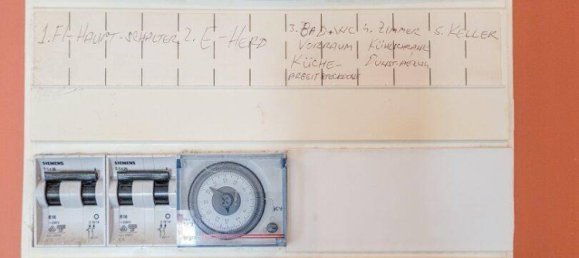 1. FI-HAUPT-SCHALTER 2. E-HERD 3. BAD+WC 4. ZIMMER 5. KELLER
VORRAUM KÜHLSCHRANK
KÜCHE- DUNSTABZUG
ARBEITSSTECKDOSE
SIEMENS SIEMENS
B16 B16